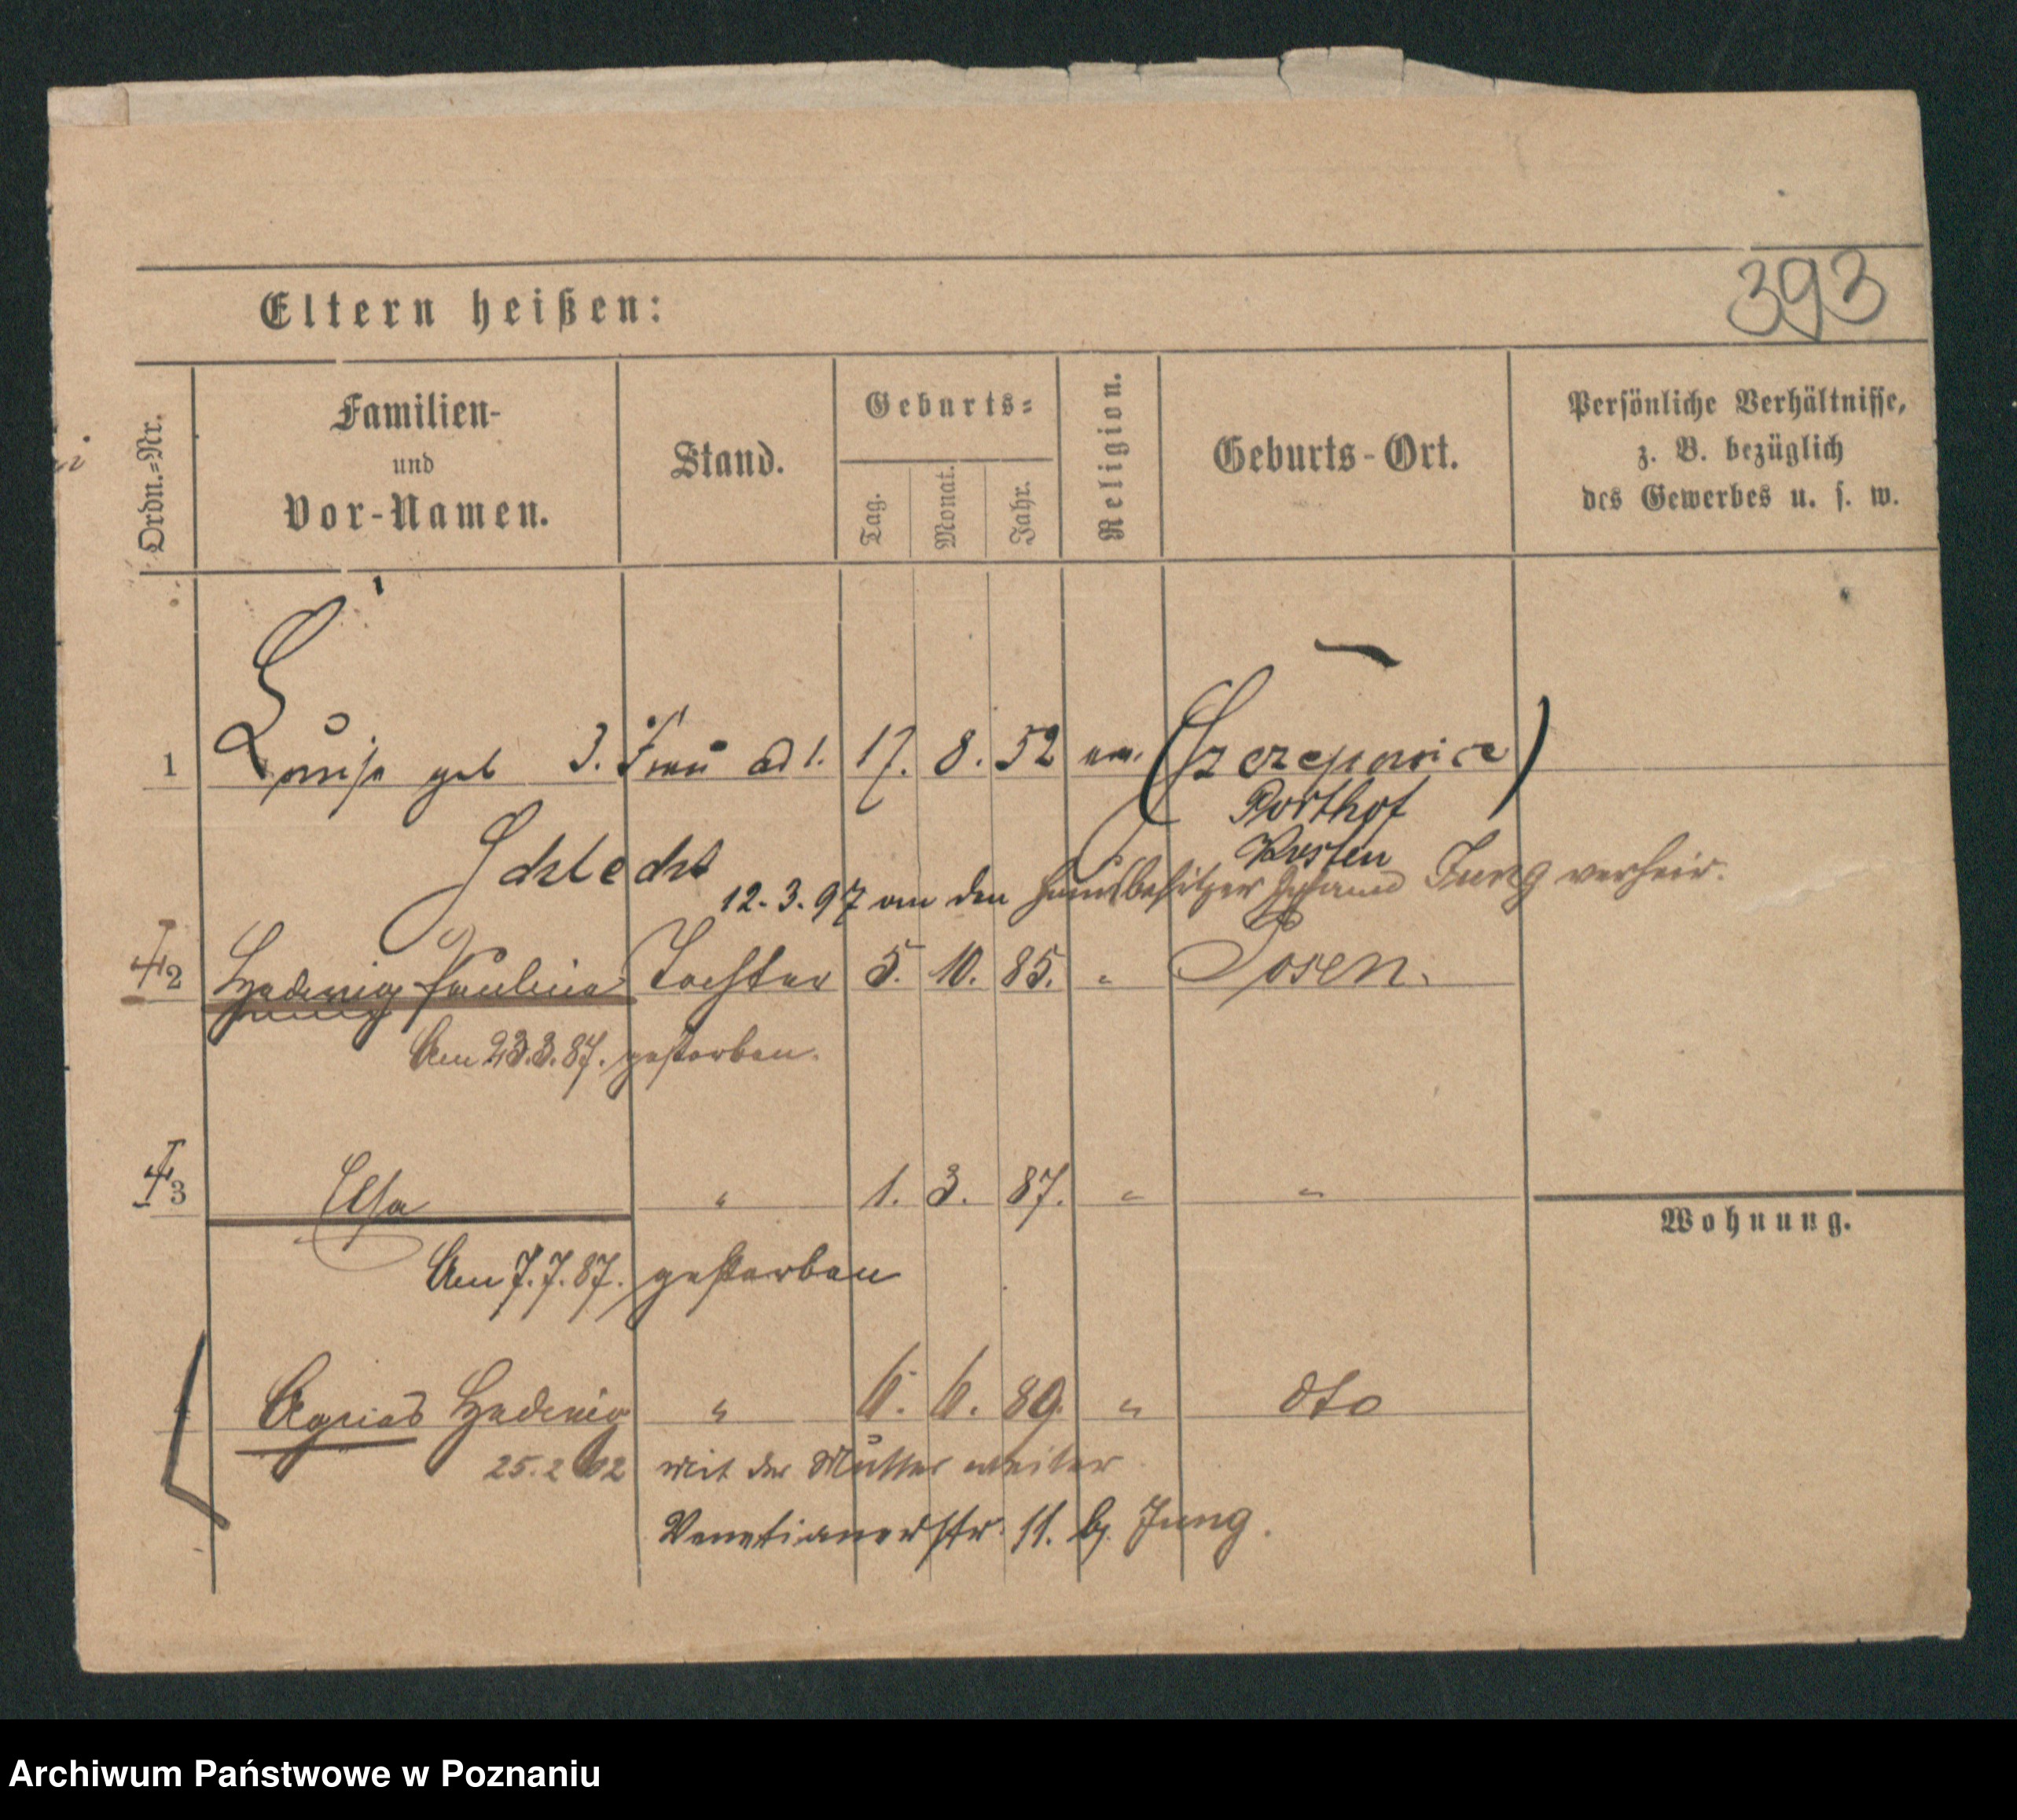 393
Eltern heißen:
Ordn.=Nr.
Familien-
und
Vor-Namen.
Stand.
Geburts=
Tag.
Monat.
Jahr.
Religion.
Geburts-Ort.
Persönliche Verhältnisse,
z. B. bezüglich
des Gewerbes u. s. w.
1 Louise geb 3. Frau ad 1. 17. 8. 52 ev. (Szczepowice)
Posthof
Kosten
Schlecht
12.3.97 an den Hausbesitzer Jung verheir.
2 Hedwig Pauline Tochter 5. 10. 85. " Posen.
Am 23.3.87. gestorben.
3 Elsa " 1. 3. 87. " "
Am 7.7.87. gestorben
Wohnung.
Agnes Hedwig " 6. 6. 89. " dto
25.2 02 mit der Mutter weiter
Venetianerstr. 11. b. Jung.
Archiwum Państwowe w Poznaniu